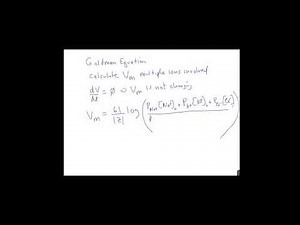 Goldman Equation
Calculate Vm multiple ions involved
dV/dt = ∅ ∴ Vm is not changing
Vm = 61/|z| log (PNa+[Na+]o + PK+[K+]o + PCl-[Cl-]
P